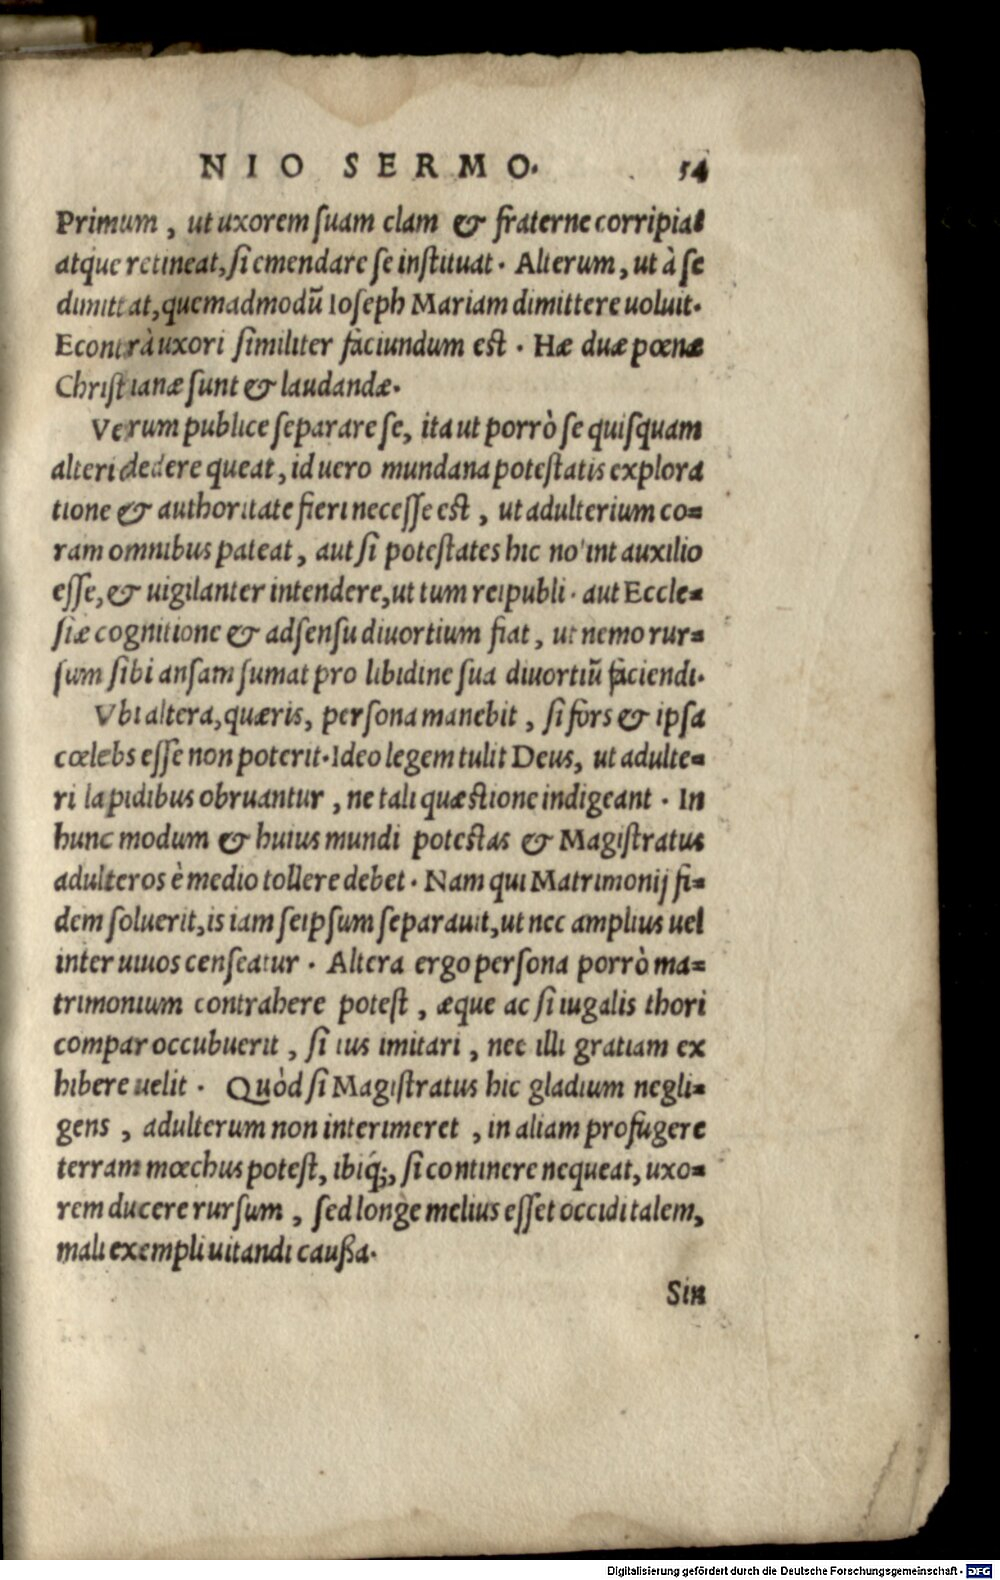 NIO SERMO. 54
Primum, ut uxorem ſuam clam & fraterne corripiat
atque retineat, ſi emendare ſe inſtituat. Alterum, ut à ſe
dimittat, quemadmodū Ioſeph Mariam dimittere uoluit.
E contrà uxori ſimiliter faciundum eſt. Hæ duæ pœnæ
Chriſtianæ ſunt & laudandæ.
Verum publice ſeparare ſe, ita ut porrò ſe quiſquam
alteri dedere queat, id uero mundana poteſtatis explora
tione & authoritate fieri neceſſe eſt, ut adulterium co=
ram omnibus pateat, aut ſi poteſtates hic no'int auxilio
eſſe, & uigilanter intendere, ut tum reipubli. aut Eccle=
ſiæ cognitione & adſenſu diuortium fiat, ut nemo rur=
ſum ſibi anſam ſumat pro libidine ſua diuortiū faciendi.
Vbi altera, quæris, perſona manebit, ſi fors & ipſa
cœlebs eſſe non poterit. Ideo legem tulit Deus, ut adulte=
ri lapidibus obruantur, ne tali quæſtione indigeant. In
hunc modum & huius mundi poteſtas & Magiſtratus
adulteros è medio tollere debet. Nam qui Matrimonij fi=
dem ſoluerit, is iam ſeipſum ſeparauit, ut nec amplius uel
inter uiuos cenſeatur. Altera ergo perſona porrò ma=
trimonium contrahere poteſt, æque ac ſi iugalis thori
compar occubuerit, ſi ius imitari, nec illi gratiam ex
hibere uelit. Quòd ſi Magiſtratus hic gladium negli=
gens, adulterum non interimeret, in aliam profugere
terram mœchus poteſt, ibiq́;, ſi continere nequeat, uxo=
rem ducere rurſum, ſed longe melius eſſet occidi talem,
mali exempli uitandi cauſſa.
Sin
Digitalisierung gefördert durch die Deutsche Forschungsgemeinschaft - DFG